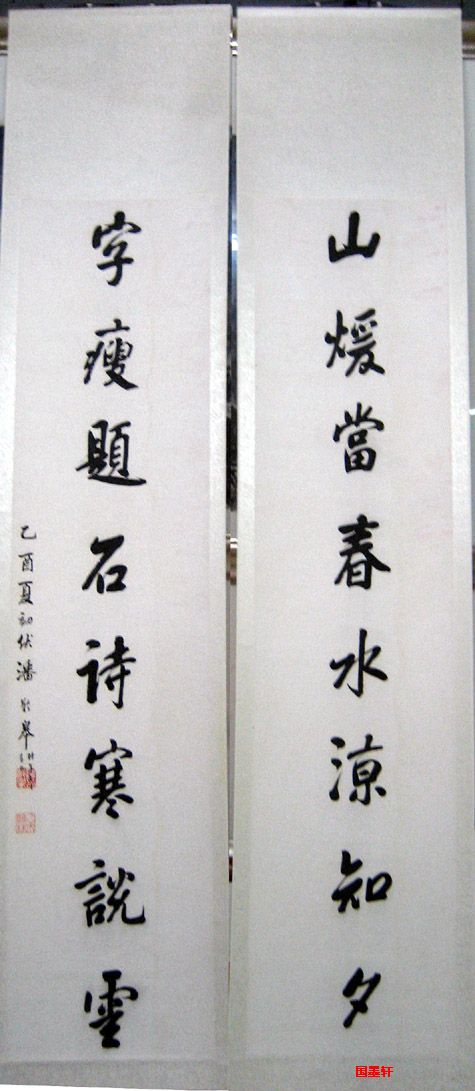 山煖當春水涼知夕
字瘦題石詩寒說雲
乙酉夏初伏潘齡皋
国美轩